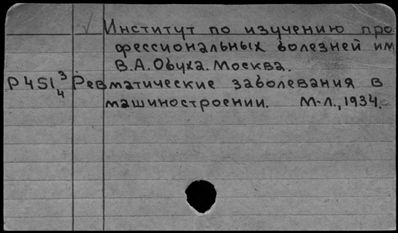 √ Институт по изучению про
фессиональных болезней им
В.А. Обуха. Москва.
Р451 3/4 Ревматические заболевания в
машиностроении. М-Л., 1934.